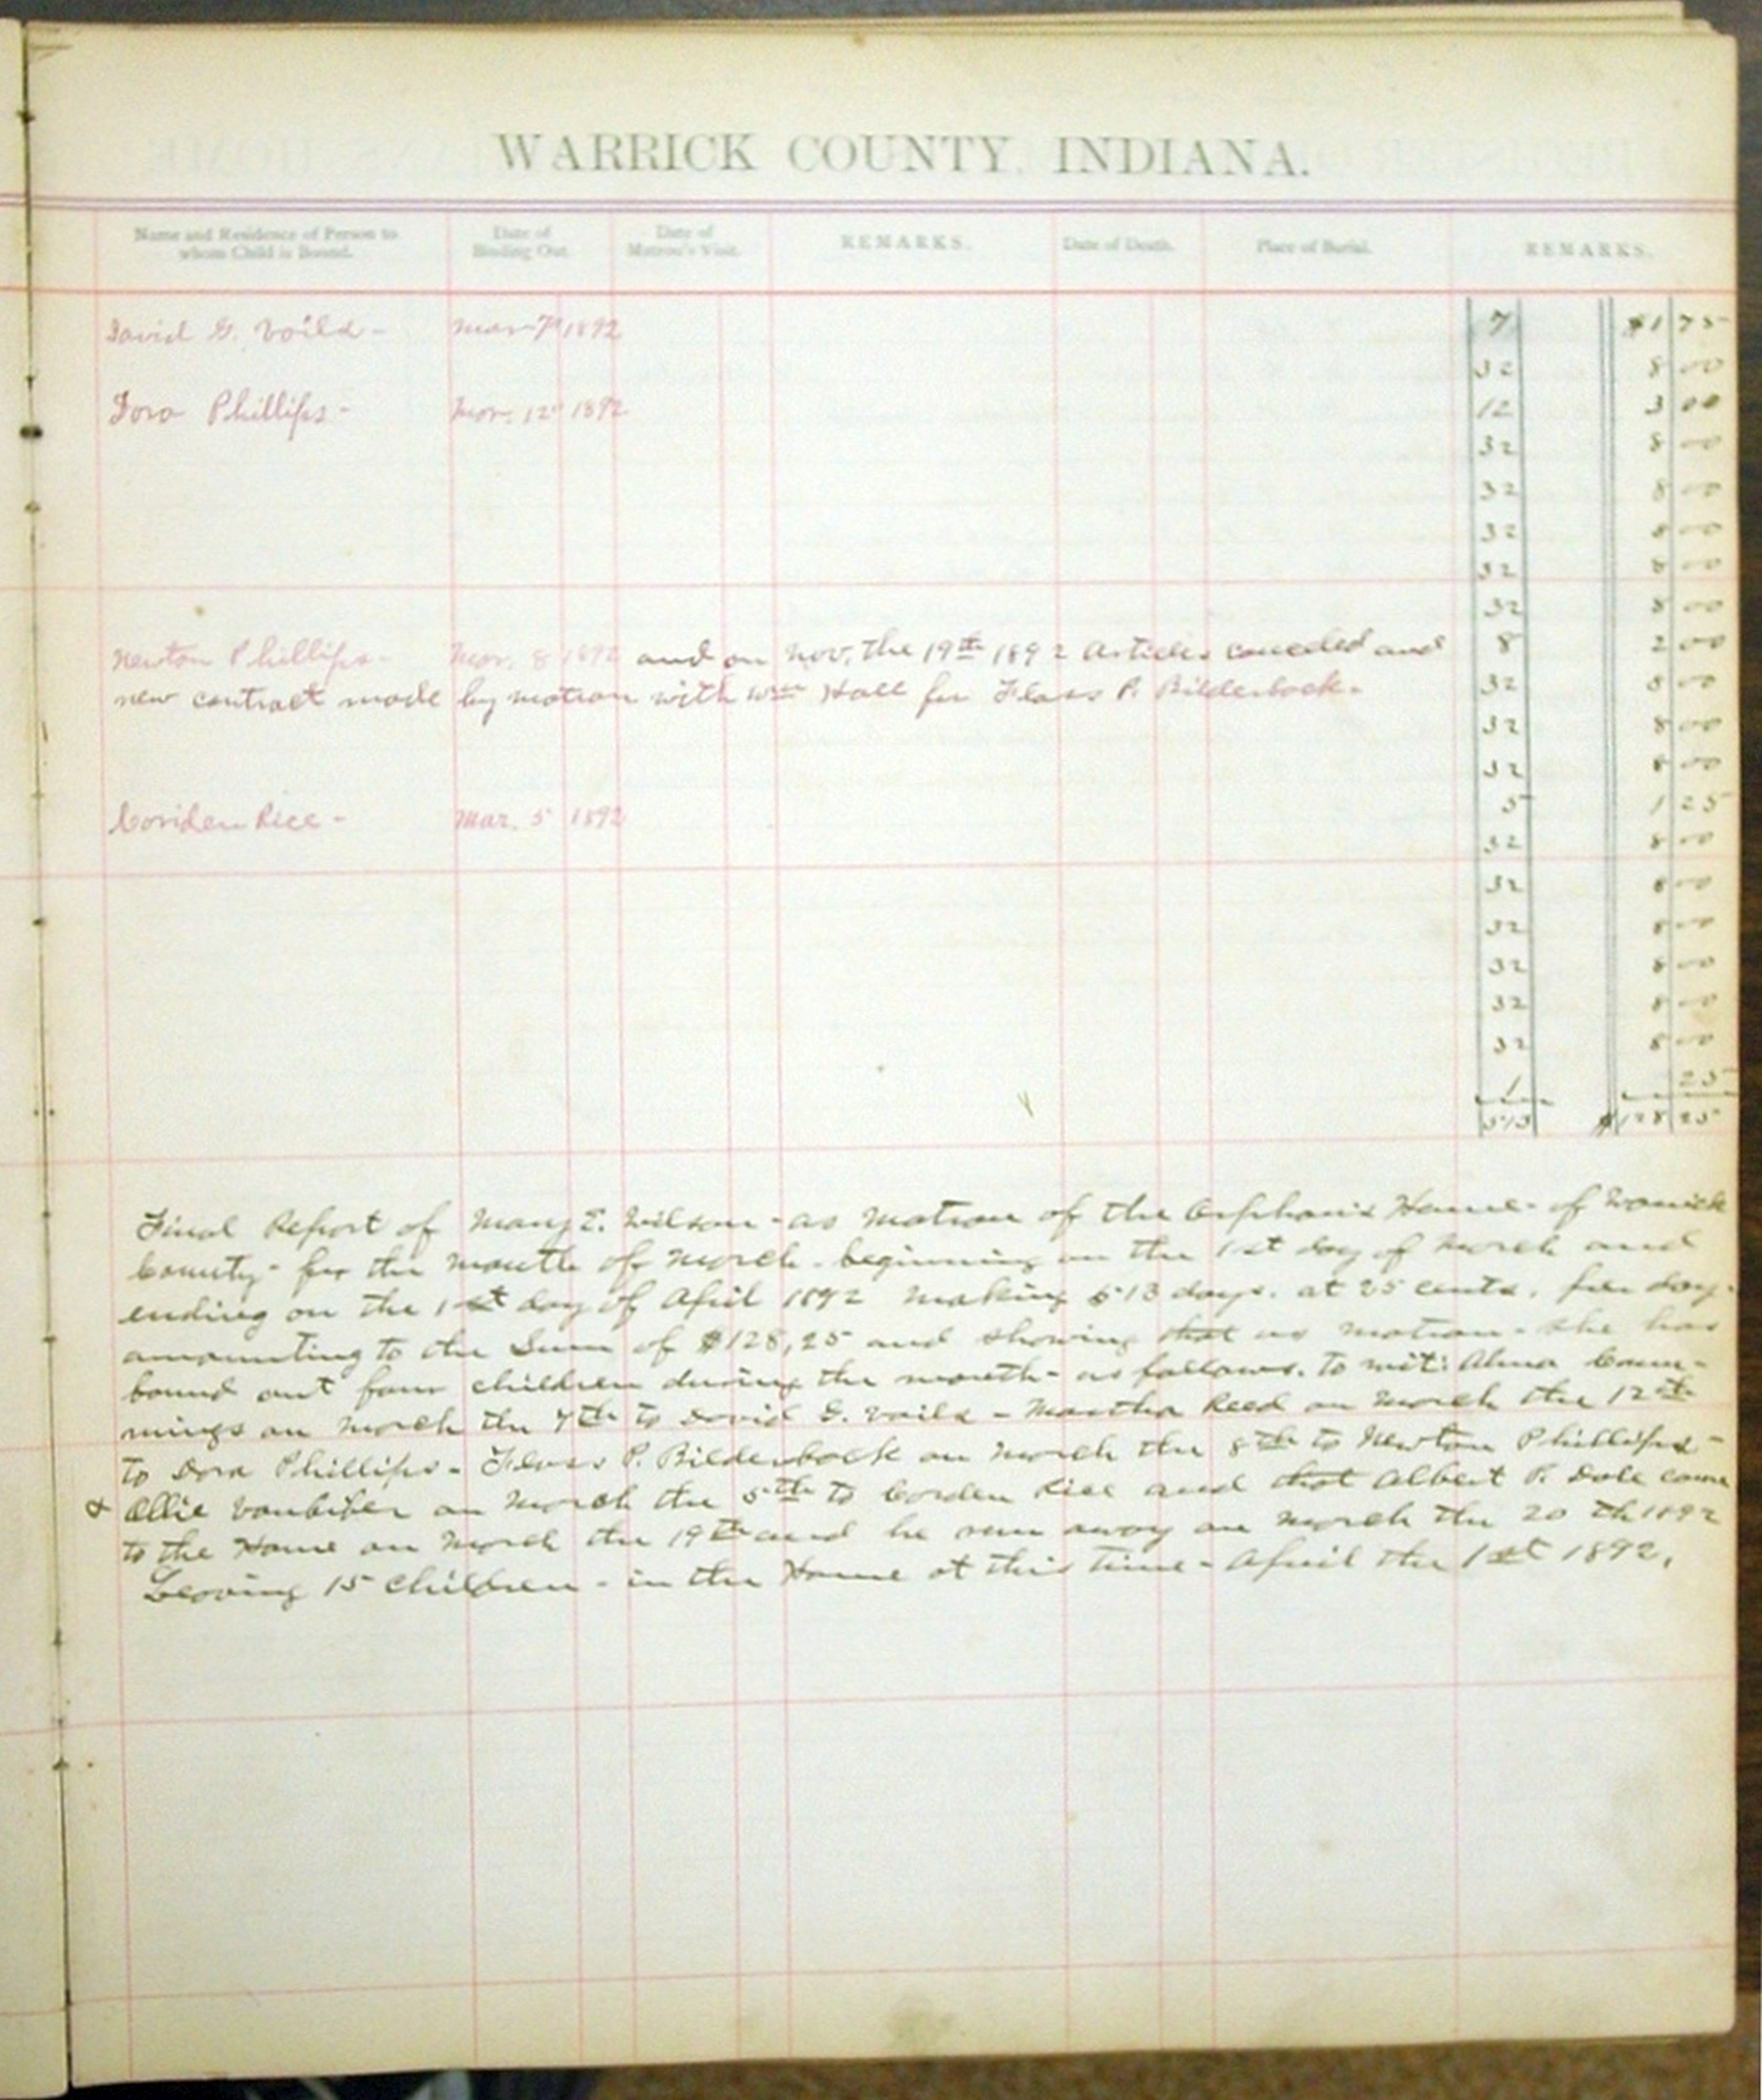 WARRICK COUNTY, INDIANA.
Name and Residence of Person to whom Child is Bound. Date of Binding Out. Date of Matron's Visit. REMARKS. Date of Death. Place of Burial. REMARKS.
David G. Voild - Mar 7th 1892 7 $1 75
32 8 00
Dora Phillips - Mar. 12th 1892 12 3 00
32 8 00
32 8 00
32 8 00
32 8 00
32 8 00
Newton Phillips - Mar. 8 1892 and on Nov. the 19th 1892 Articles canceled and 8 2 00
new contract made by matron with Wm Hall for Floss P. Bilderback - 32 8 00
32 8 00
32 8 00
Coriden Rice - Mar. 5 1892 5 1 25
32 8 00
32 8 00
32 8 00
32 8 00
32 8 00
32 8 00
1 25
513 $128 25
Final Report of Mary E. Wilson - as Matron of the Orphan's Home - of Warrick
County - for the month of March - beginning on the 1st day of March and
ending on the 1st day of April 1892 making 513 days. at 25 cents, per day.
amounting to the Sum of $128,25 and showing that as matron - she has
bound out four children during the month - as follows. to wit: Alma Cum-
mings on March the 7th to David G. Voild - Martha Reed on March the 12th
to Dora Phillips - Floss P. Bilderback on March the 8th to Newton Phillips -
& Ollie on March the 5th to Corden Rice and that Albert P. Dale came
to the Home on March the 19th and he run away on March the 20th 1892
Leaving 15 children - in the Home at this time - April the 1st 1892.